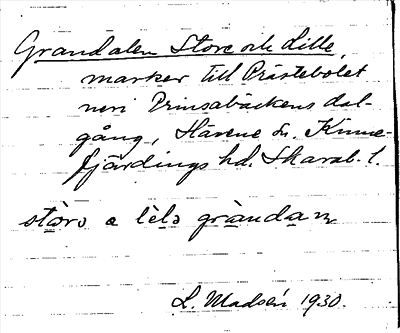 Grandalen Store och Lille,
marker till Prästebolet
neri Prinsabäckens dal-
gång, Härene sn. Kinne-
fjärdings hd. Skarab. l.
stòrə a lèlə gràndaɳ
L. Madsén 1930.